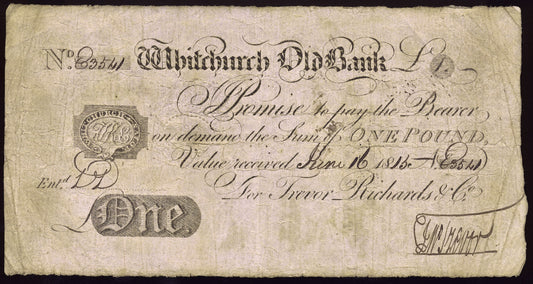 No. E3541 Whitchurch Old Bank £1.
I Promise to pay the Bearer
WHITCHURCH
on demand the Sum of ONE POUND,
Value received June 16 1815 E3541
Ent.d
For Trevor, Richards & Co.
£One.